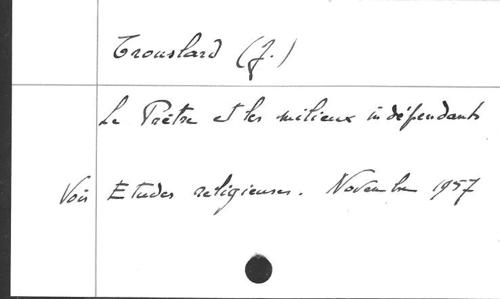 Trouslard (J.)
Le Prêtre et les milieux indépendants
Voir Etudes religieuses. Novembre 1957